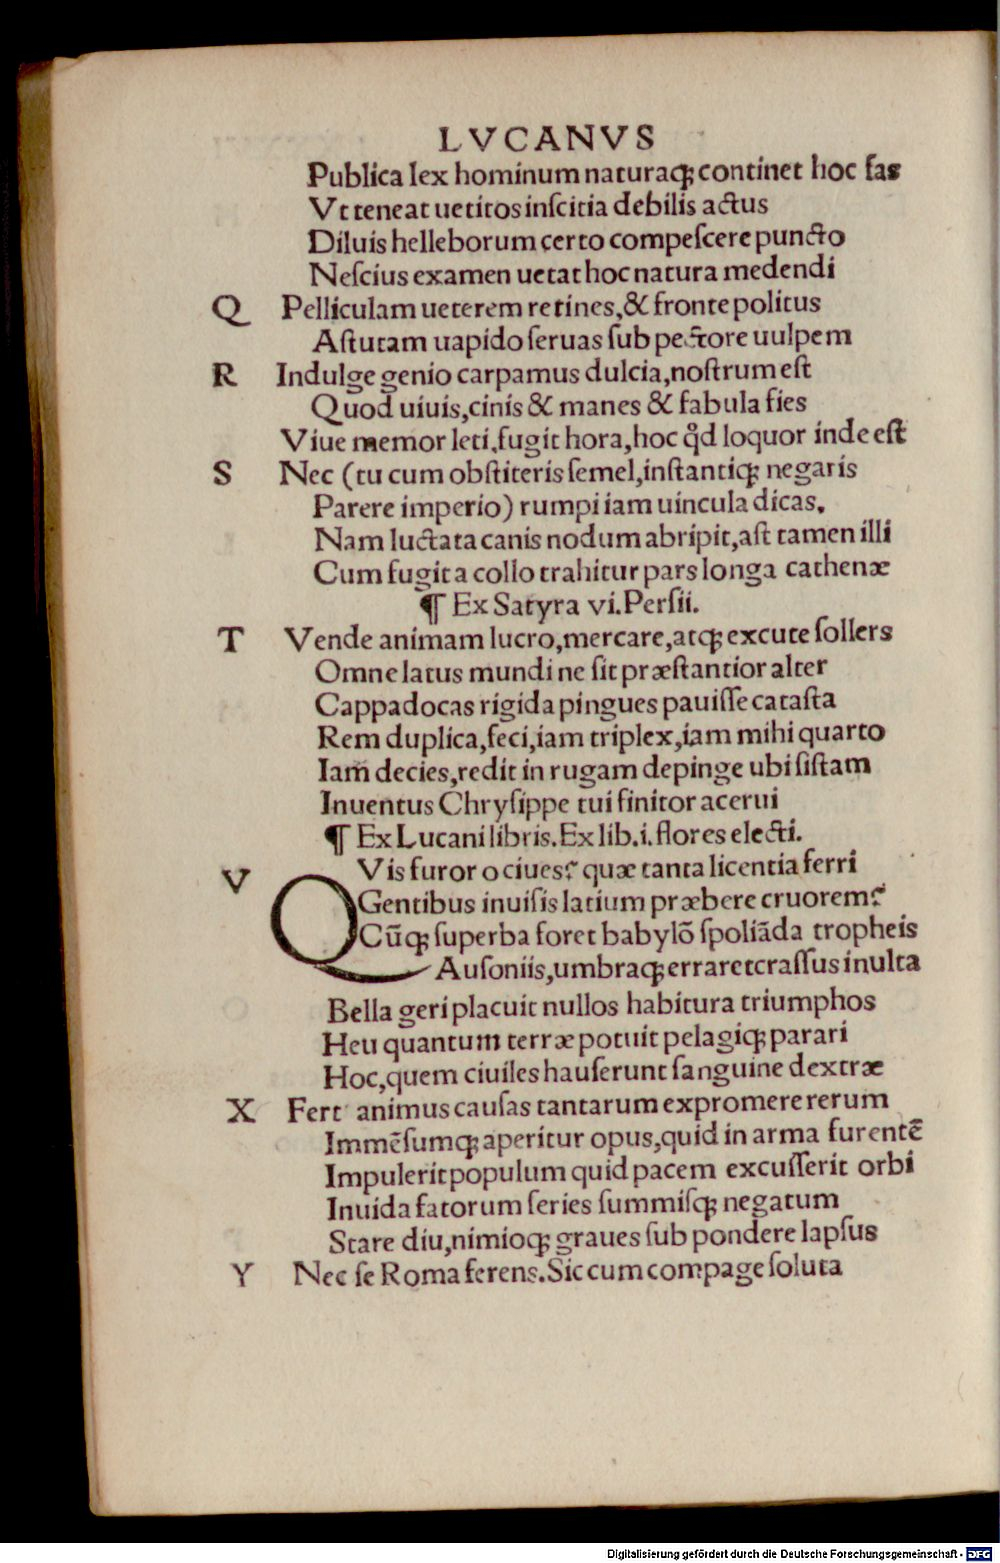 LVCANVS
Publica lex hominum naturaqꝫ continet hoc fas
Vt teneat uetitos inſcitia debilis actus
Diluis helleborum certo compeſcere puncto
Neſcius examen uetat hoc natura medendi
Q Pelliculam ueterem retines,& fronte politus
Aſtutam uapido ſeruas ſub pectore uulpem
R Indulge genio carpamus dulcia,noſtrum eſt
Quod uiuis,cinis & manes & fabula fies
Viue memor leti,fugit hora,hoc qd̊ loquor inde eſt
S Nec (tu cum obſtiteris ſemel,inſtantiqꝫ negaris
Parere imperio) rumpi iam uincula dicas.
Nam luctata canis nodum abripit,aſt tamen illi
Cum fugit a collo trahitur pars longa cathenæ
¶ Ex Satyra vi.Perſii.
T Vende animam lucro,mercare,atqꝫ excute ſollers
Omne latus mundi ne ſit præſtantior alter
Cappadocas rigida pingues pauiſſe cataſta
Rem duplica,feci,iam triplex,iam mihi quarto
Iam decies,redit in rugam depinge ubi ſiſtam
Inuentus Chryſippe tui finitor acerui
¶ Ex Lucani libris.Ex lib.i.flores electi.
V QVis furor o ciues? quæ tanta licentia ferri
Gentibus inuiſis latium præbere cruorem?
Cūqꝫ ſuperba foret babylō ſpoliāda tropheis
Auſoniis,umbraqꝫ erraret craſſus inulta
Bella geri placuit nullos habitura triumphos
Heu quantum terræ potuit pelagiqꝫ parari
Hoc,quem ciuiles hauſerunt ſanguine dextræ
X Fert animus cauſas tantarum expromere rerum
Immēſumqꝫ aperitur opus,quid in arma furentē
Impulerit populum quid pacem excuſſerit orbi
Inuida fatorum ſeries ſummiſqꝫ negatum
Stare diu,nimioqꝫ graues ſub pondere lapſus
Y Nec ſe Roma ferens.Sic cum compage ſoluta
Digitalisierung gefördert durch die Deutsche Forschungsgemeinschaft - DFG